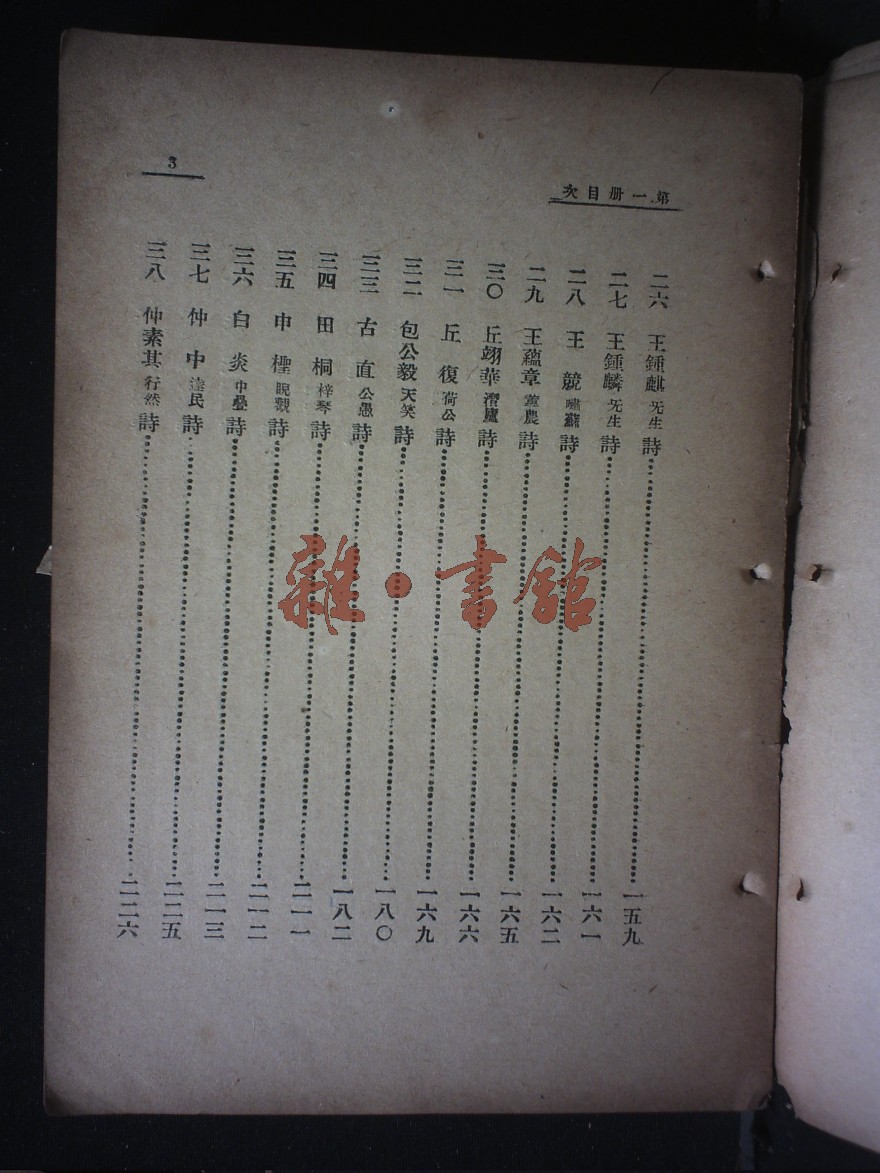 第一册目次
3
二六 王鍾麒 旡生 詩 一五九
二七 王鍾麟 旡生 詩 一六一
二八 王競 嘯蘇 詩 一六二
二九 王蘊章 蓴農 詩 一六五
三〇 丘翊華 潛廬 詩 一六六
三一 丘復 荷公 詩 一六九
三二 包公毅 天笑 詩 一八〇
三三 古直 公愚 詩 一八二
三四 田桐 梓琴 詩 二一一
三五 申檉 睨觀 詩 二一二
三六 白炎 中壘 詩 二一三
三七 仲中 達民 詩 二二五
三八 仲素其 行然 詩 二二六
雜·書館